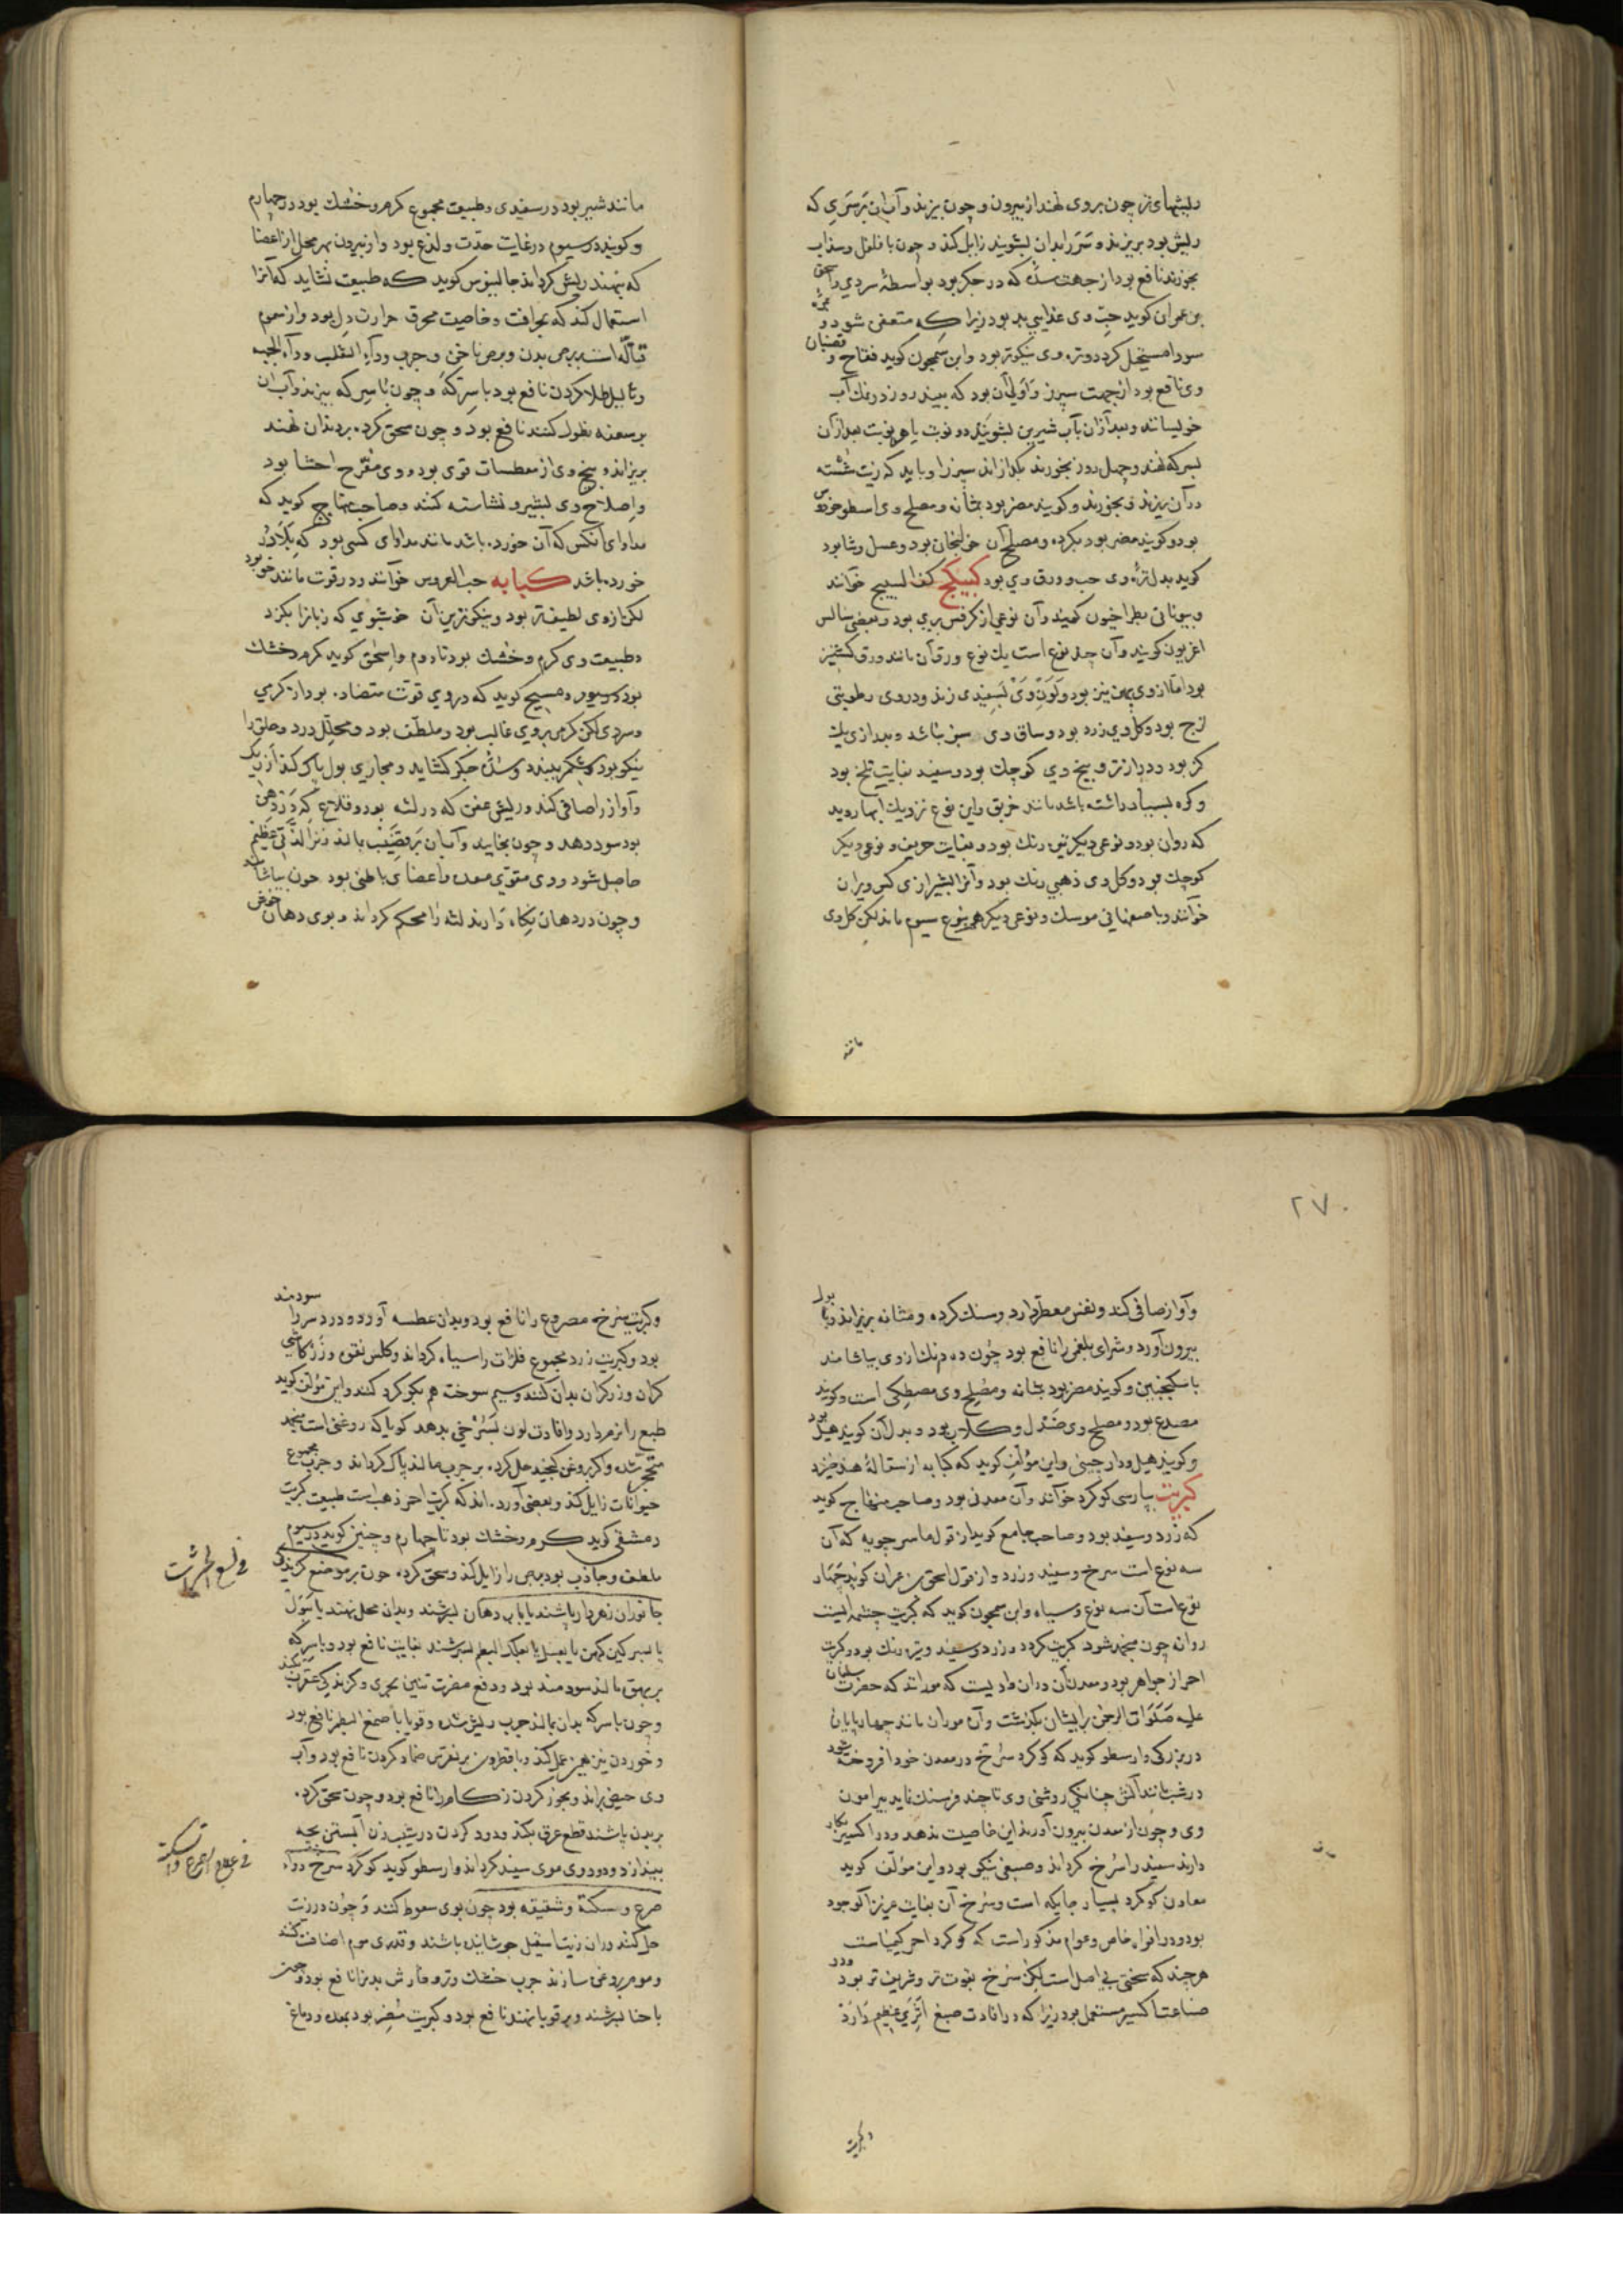 ریشهای تر چون بروی نهند از بیرون و چون بپزند و آب آن بر سری که
ریش بود بریزند و سر را بدان بشویند زایل کند و چون با فلفل و سداب
بخورند نافع بود از جهت سده که در جگر بود بواسطهٔ سردی و اسحق
بن عمران کوید حب وی غذایی بد بود زیرا که متعفن شود و بمره
سودا مستحیل کردد و تره وی نیکوتر بود و ابن سمجون کوید فقاح و قضبان
وی نافع بود از جهت سپرز و اولی آن بود که بیند روز در نمک آب
خویسانند و بعد از آن بآب شیرین بشویند دو نوبت یا سه نوبت بعد از آن
بسرکه نهند و چهل روز بخورند بکدازاند سپرز را و باید که زیت شسته
در آن ریزند و بخورند و کویند مضر بود بمثانه و مصلح وی اسطوخودوس
بود و کویند مضر بود بکرده و مصلح آن خولنجان بود و عسل و شابود
کوید بدل تره وی حب و ورق وی بود کبیکج کف السبع خوانند
و بیونانی بطراخیون کویند و آن نوعی از کرفس بری بود و بعضی سالس
اغریون کویند و آن چند نوع است یک نوع ورق آن مانند ورق کشنیز
بود اما از وی پهن تر بود و لون وی بسفیدی زند و در وی رطوبتی
لزج بود و کل وی زرد بود و ساق وی سبز نباشد و بدرازی یک
کز بود و درازتر و بیخ وی کوچک بود و سفید بغایت تلخ بود
و کره بسیار داشته باشد مانند خربق و این نوع نزدیک آبها روید
که روان بود و نوعی دیکر تیره رنک بود و بغایت حریف و نوعی دیکر
کوچک بود و کل وی ذهبی رنک بود و آنرا بشیرازی کس ویران
خوانند و باصفهانی موسک و نوعی دیکر هم بنوع سیوم ماند لیکن کل وی
مانند شیر بود در سفیدی و طبیعت مجموع کرم و خشک بود در چهارم
و کویند در سیوم در غایت حدت و لذع بود و از بیرون بهر محل از اعضا
که نهند ریش کرداند جالینوس کوید که طبیعت نشاید که آنرا
استعمال کند که بحرافت و خاصیت محرق حرارت دل بود و از سموم
قتاله است بر برص بدن و برص ناخن و جرب و داء الثعلب و داء الحیه
و ثالیل طلا کردن نافع بود با سرکه و چون با سرکه بپزند و آب آن
بر سعفه نطول کنند نافع بود و چون سحق کرده بر دندان نهند
بریزاند و بیخ وی از معطسات قوی بود و وی مقرح احشا بود
و اصلاح وی بشیر و نشاسته کنند و صاحب منهاج کوید که
مداوای آنکس که آن خورده باشد مانند مداوای کسی بود که بلادر
خورده باشد کبابه حب العروس خوانند و در قوت مانند خو بود
لکن از وی لطیف تر بود و نیکوترین آن خوشبوی که زبانرا بکزد
و طبیعت وی کرم و خشک بود تا دوم و اسحق کوید کرم و خشک
بود در سیوم و مسیح کوید که در وی قوت متضاد بود از کرمی
و سردی لکن کرمی بروی غالب بود و ملطف بود و محلل درد و حلق را
نیکو بود و شکم ببندد و سده جکر کشاید و مجاری بول پاک کند از ریک
و آواز را صافی کند و ریش عفن که در لثه بود و قلاع که در دهن
بود سود دهد و چون بخایند و آب آن بر قضیب مالند زنرا لذتی عظیم
حاصل شود و وی مقوی معده و اعضای باطنی بود چون بیاشامند
و چون در دهان نکاه دارند لثه را محکم کرداند و بوی دهان خوش
مانند
۲۷۰
و آواز صافی کند و نفس معطر دارد و سنک کرده و مثانه بریزاند و با بول
بیرون آورد و شرای بلغمی را نافع بود چون ده درم نک از وی بیاشامند
با سکنجبین و کویند مضر بود بمثانه و مصلح وی مصطکی است و کویند
مصدع بود و مصلح وی صندل و کلاب بود و بدل آن کویند هیل بود
و کویند هیل و دارچینی و این مؤلف کوید که کبابه از سقالهٔ هند خیزد
کبریت بپارسی کوکرد خوانند و آن معدنی بود و صاحب منهاج کوید
که زرد و سفید بود و صاحب جامع کوید از قول ماسرجویه که آن
سه نوع است سرخ و سفید و زرد و از قول اسحق بن عمران کوید چهار
نوع است آن سه نوع و سیاه و ابن سمجون کوید که کبریت چشمه ایست
روانه چون منجمد شود کبریت کردد و زردی سفید و تیره رنک بود و کبریت
احمر از جواهر بود و معدن آن در آن وادیست که موراند که حضرت سلیمان
علیه صلوات الرحمن برایشان بکذشت و آن موران مانند چهارپایان
در بزرکی و ارسطو کوید که کوکرد سرخ در معدن خود افروخته شود
در شب مانند آتش چنانکه روشنی وی تا چند فرسنک نماید پیرامون
وی و چون از معدن بیرون آورند این خاصیت ندهد و در اکسیر بکار
دارند سفید را سرخ کرداند و صبغی نیکو بود و این مؤلف کوید
معادن کوکرد بسیار جایکه است و سرخ آن بغایت عزیز الوجود
بود و در افواه خاص و عوام مذکور است که کوکرد احمر کیمیاست
هرچند که سخنی بی اصل است لیکن سرخ بقوت تر و شریف تر بود و در
صناعت اکسیر مستعمل بود زیرا که در افادت صبغ اثری عظیم دارد
و کبریت
و کبریت سرخ مصروع را نافع بود و بدان عطسه آورد و درد سر را سودمند
بود و کبریت زرد مجموع فلزات را سیاه کرداند و کلس نقره و زر کاشی
کران و زرکران بدان کنند و سیم سوخت هم بکوکرد کنند و این مؤلف کوید
طبع را نرم دارد و افادت لون بسرخی بدهد کویا که روغنی است منجمد
متحجر شده و اکر بروغن کنجد حل کرده بر جرب مالند پاک کرداند و جرب مجموع
حیوانات زایل کند و بعضی آورده اند که کبریت احمر ذهب است طبیعت کبریت
دمشقی کوید کرم و خشک بود تا چهارم و چنین کوید در سیوم
ملطف و جاذب بود برص را زایل کند و سحق کرده چون بر موضع کزیدکی
جانوران زهردار پاشند یا بآب دهان بسرشند و بدان محل نهند یا ببول
یا بسرکین کهن یا بعسل یا بعلک البطم بسرشند بغایت نافع بود و با سرکه
بر بهق مالند سودمند بود و دفع مضرت تنین بحری و کزندکی عقرب بکند
و چون با سرکه بدان بمالند جرب ریش شده و قوبا با صمغ البطم نافع بود
و خوردن نیز همین عمل کند و با نطرون بر نقرس ضماد کردن نافع بود و آب
وی حیض براند و بخور کردن زکام را نافع بود و چون سحق کرده
بر بدن پاشند قطع عرق بکند و دود کردن در شیب زن آبستن بچه
بیندازد و دود وی موی سفید کرداند و ارسطو کوید کوکرد سرخ دواء
صرع و سکته و شقیقه بود چون بوی سعوط کنند و چون در زیت
حل کنند و در آن زیت اسقیل جوشانیده باشند و قدری موم اضافت کنند
و موم روغن سازند جرب خشک و تر و خارش بدنرا نافع بود و چون
با حنا بسرشند و بر قوبا نهند نافع بود و کبریت مضر بود بمعده و دماغ
فی لسع الحشرات
فی علاج الصرع والسکته